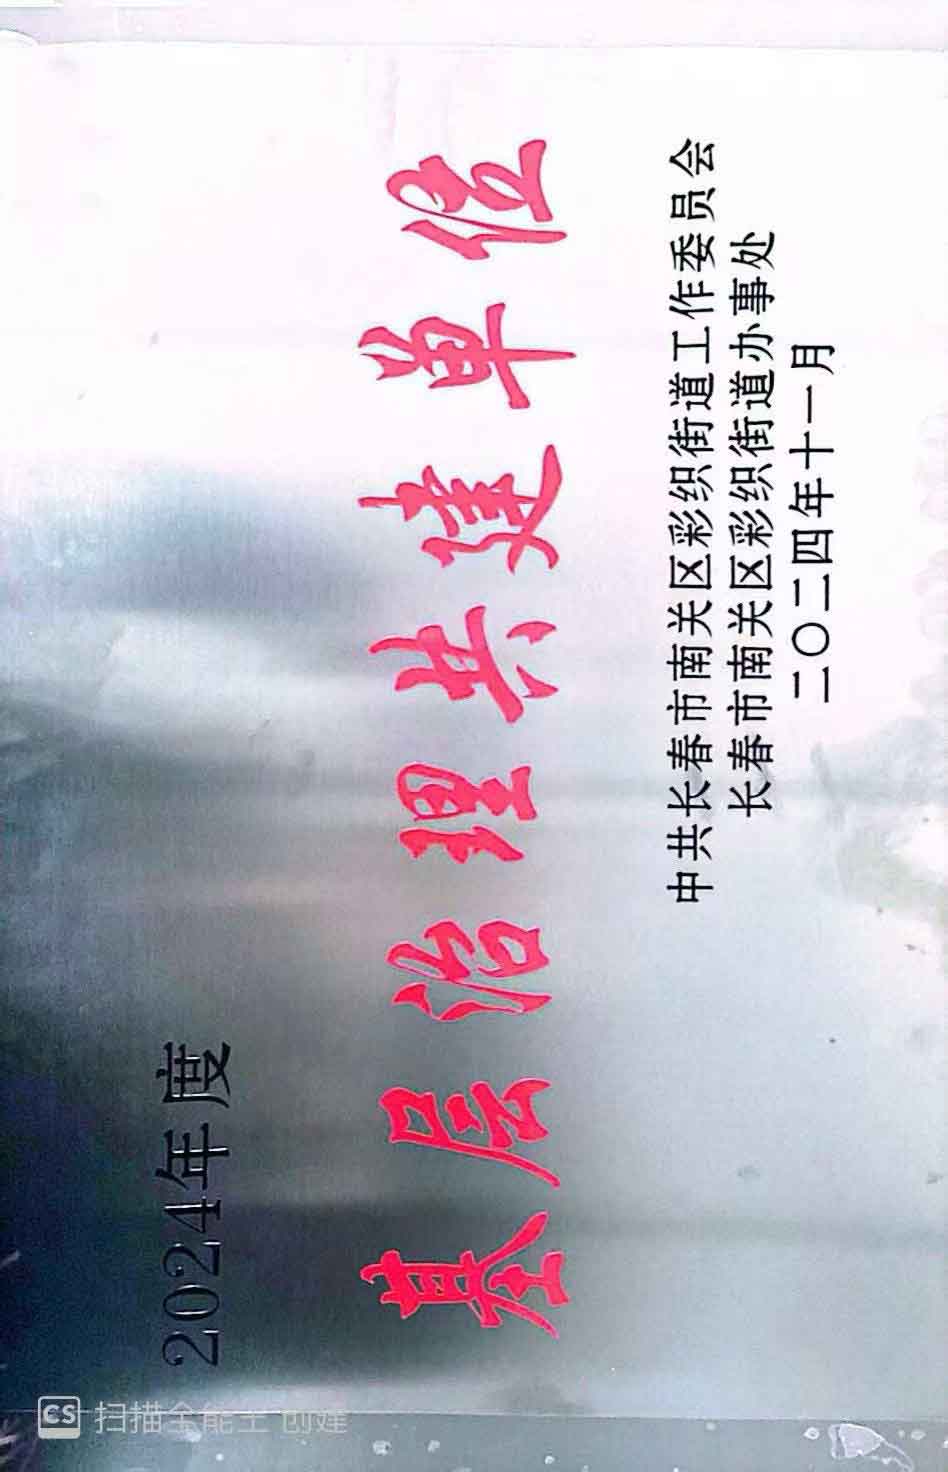 2024年度
基层治理共建单位
中共长春市南关区彩织街道工作委员会
长春市南关区彩织街道办事处
二〇二四年十一月
CS 扫描全能王 创建